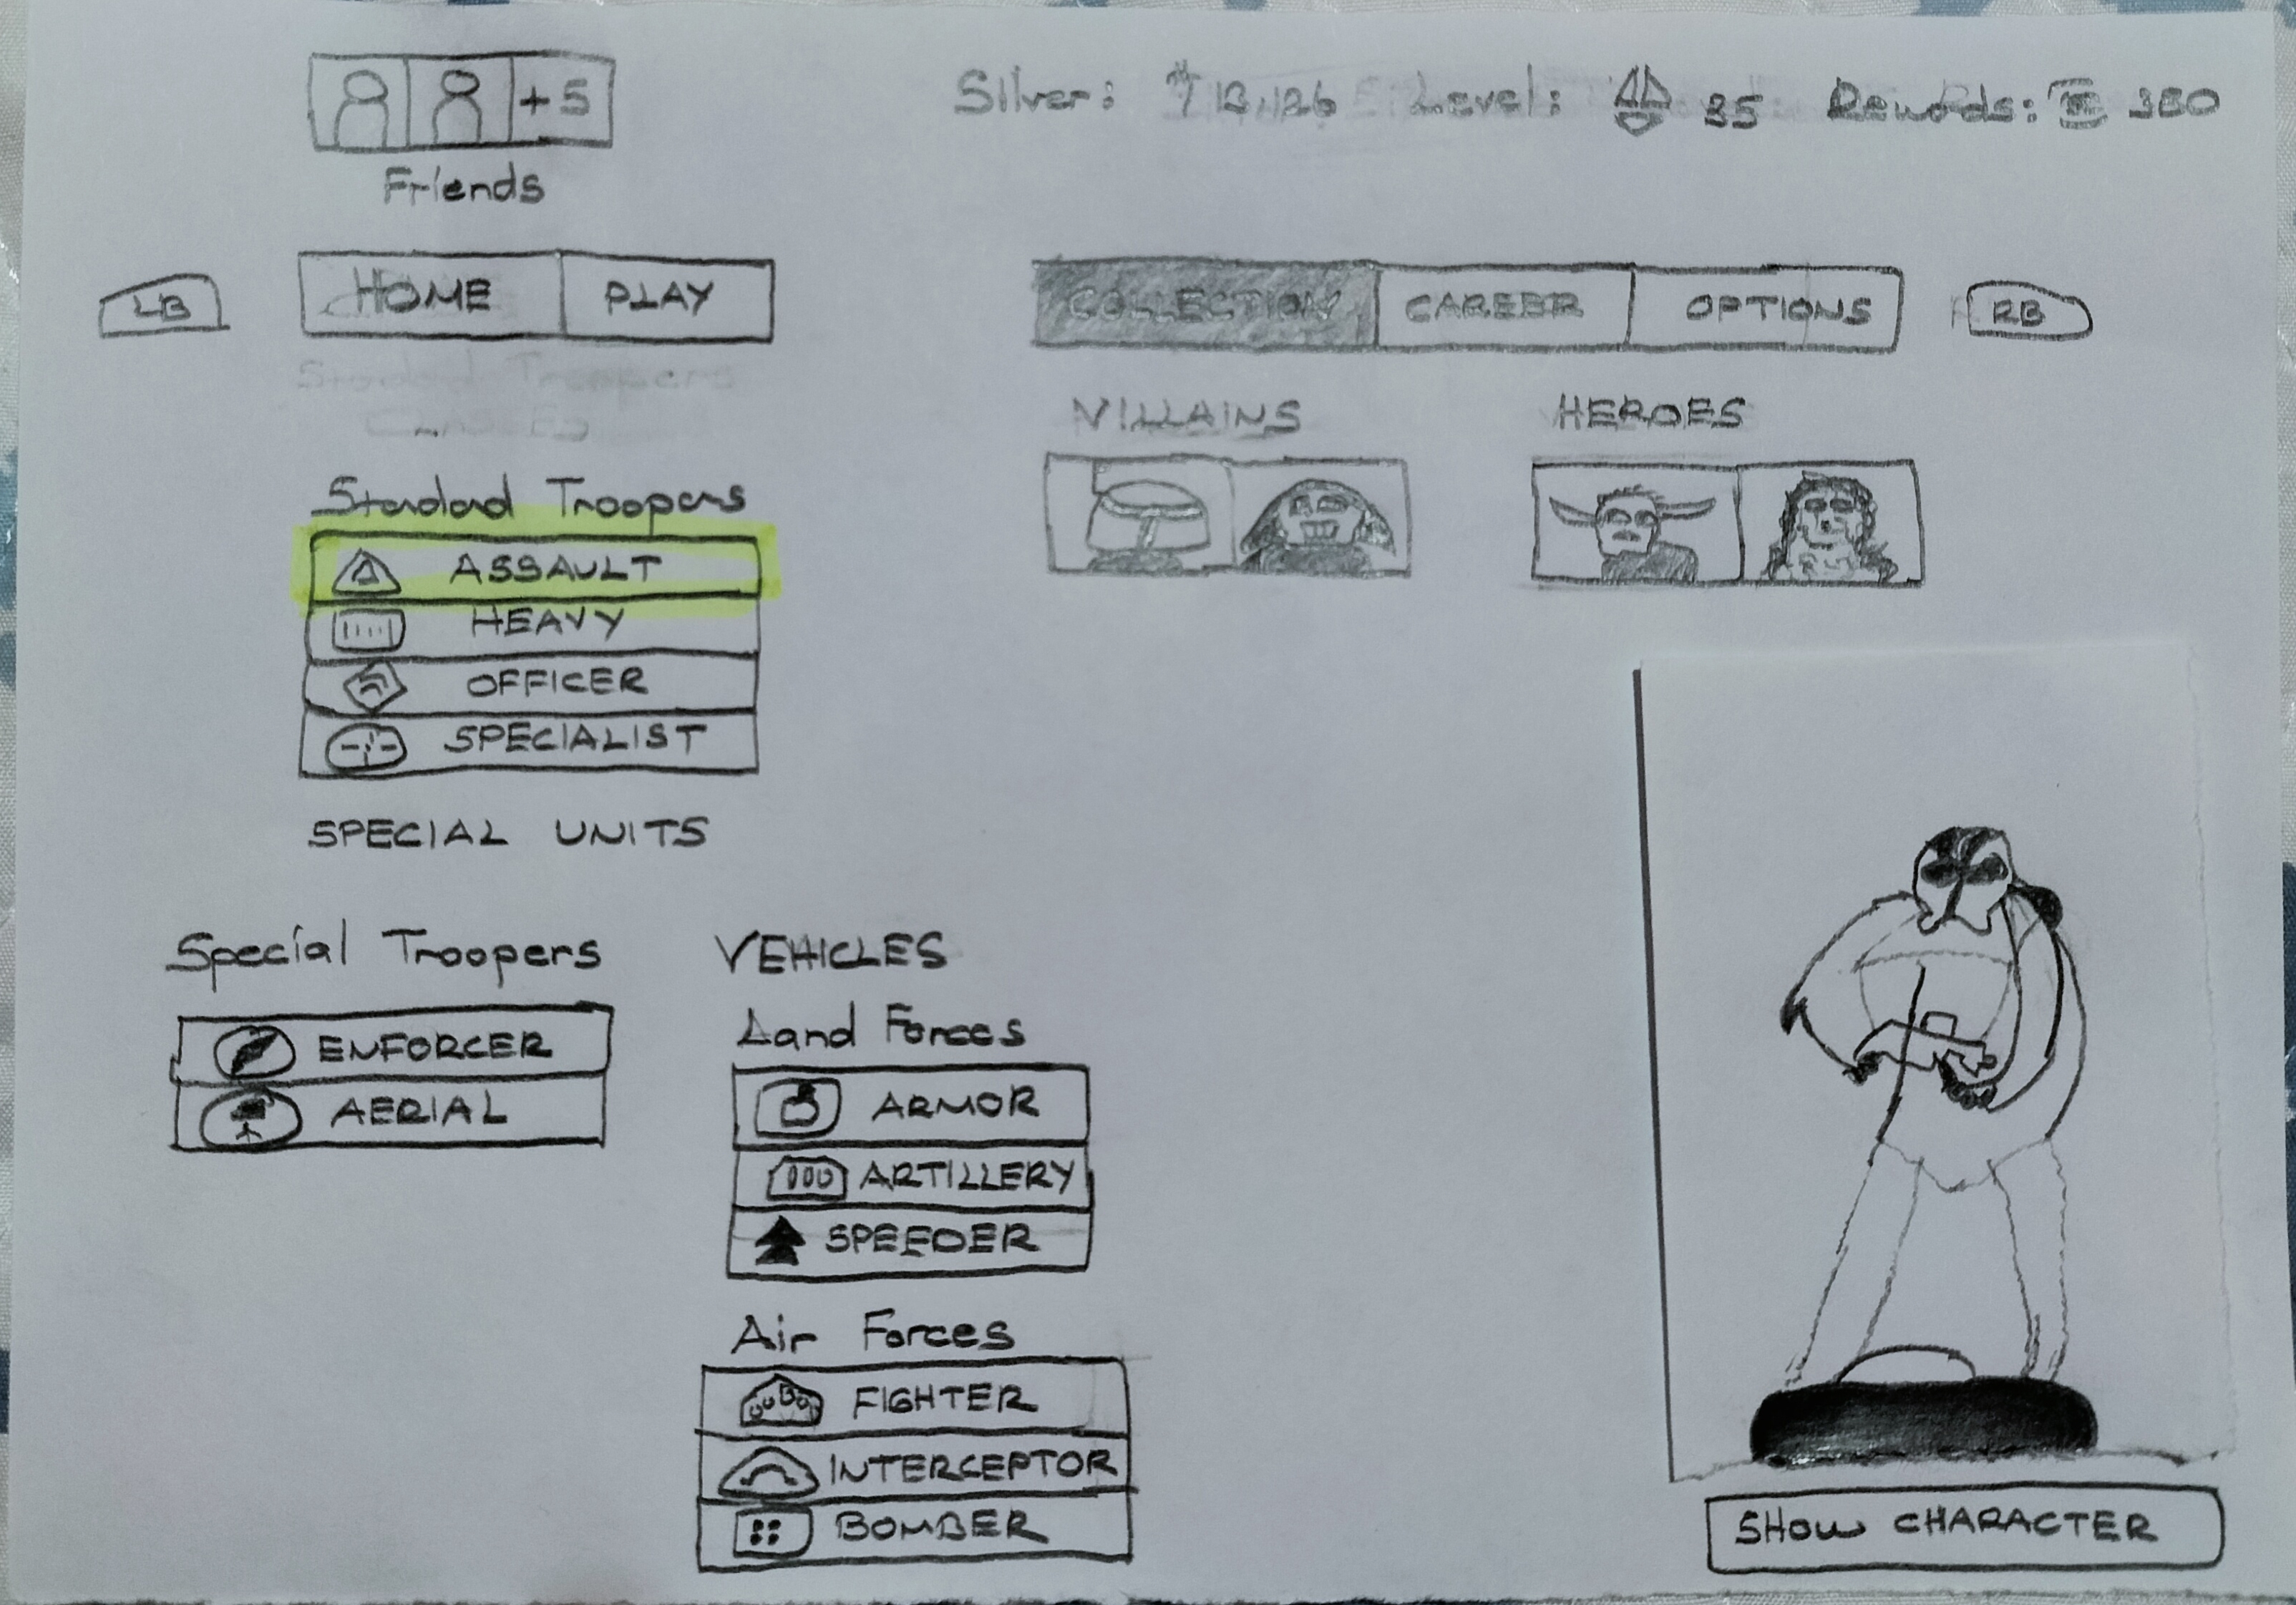 +5
Friends
Silver: 12,126 Level: 35 Rewods: 350
LB HOME PLAY COLLECTION CAREER OPTIONS RB
Standard Troopers
VILLAINS HEROES
Stardad Troopers
ASSAULT
HEAVY
OFFICER
SPECIALIST
SPECIAL UNITS
Special Troopers
ENFORCER
AERIAL
VEHICLES
Land Forces
ARMOR
ARTILLERY
SPEEDER
Air Forces
FIGHTER
INTERCEPTOR
BOMBER
SHOW CHARACTER